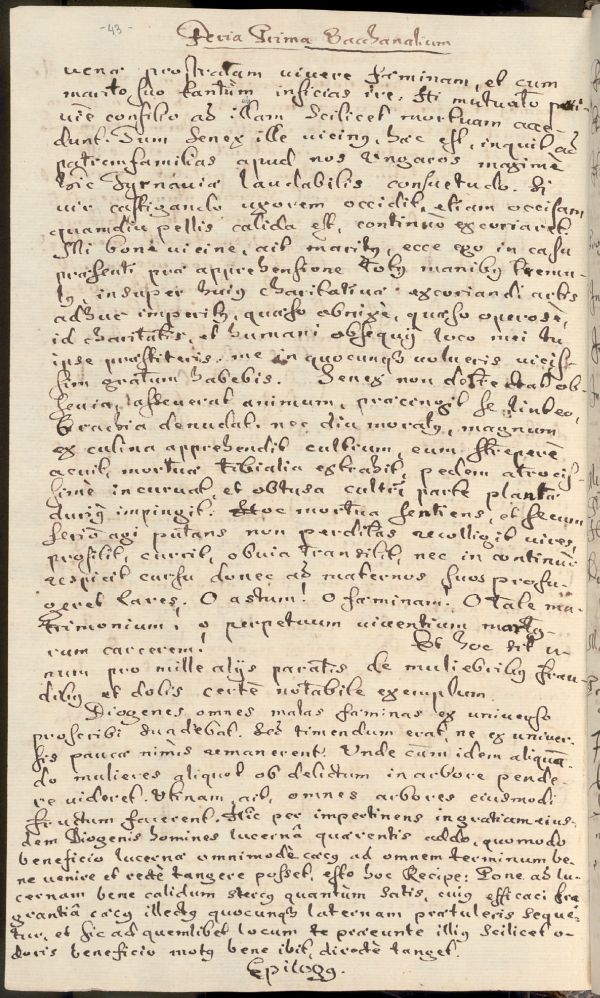 -43-
Feria Prima Bacchanalium
venae prostratam vivere faeminam, et cum
marito suo tantùm inficias ire: Hi mutuato
viē consilio ad illam scilicet mortuam acce-
dunt. Tum Senex ille vicinq, hâc est, inquit ad
patremfamilias apud nos Ungaros maximè
hîc Tyrnaviae laudabilis consuetudo. Si
vir castigando uxorem occidit, etiam occisam
quamdiu pellis calida est, continuò excoriaret.
Mi bone vicine, ait maritq, ecce ego in casu
praesenti prae apprehensione totq manibq tremu-
lq, insuper huiq charitativae excoriandi artis
adhuc imperitq, quaeso obnixè, quaeso operosè,
id charitatis, et humani obsequij loco mei tu
ipse praestiteris. me in quocunq3 volueris vicis-
sim gratum habebis. Senex non
, asseverat animum, praecingit se linteo,
brachia denudat. nec diu moratq, magnum
ex culina apprehendit cultrum, eum strepere
acuit, mortuae tibialia extrahit, pedem atrocis-
simè incurvat, et obtusa cultri parte plantae
duriq impingit. Hoc mortua sentiens, et secum
seriò agi putans non perditas recolligit vires,
prosilit, currit, obvia transilit, nec in continuo
respicit cursu donec ad maternos suos profu-
geret lares. O astum! O faeminam! O tale ma-
trimonium! o perpetuum viventium marty-
rum carcerem! Et hoc sit u-
num pro mille alijs paratis de muliebribq frau-
dibq et dolis certè notabile exemplum.
Diogenes omnes malas faeminas ex universo
proscribi suadebat. Sed timendum erat, ne ex univer-
sis paucae nimis remanerent. Unde cùm idem aliquan-
do mulieres aliquot ob delictum in arbore pende-
re videret. Utinam, ait, omnes arbores eiusmodi
fructum facerent. Hîc per impertinens in gratiam eius-
dem Diogenis homines lucernâ quaerentis addo, quomodo
beneficio lucernae omnimodè caecq ad omnem terminum be-
ne venire et rectè tangere posset, esto hoc Recipe: Pone ad lu-
cernam bene calidum stercq quantùm satis, cuiq efficaci fra-
grantiâ caecq illectq quocunq3 laternam praetuleris seque-
tur, et sic ad quemlibet locum te praeeunte illiq scilicet o-
doris beneficio motq bene ibit, directè tanget.
Epilogq.